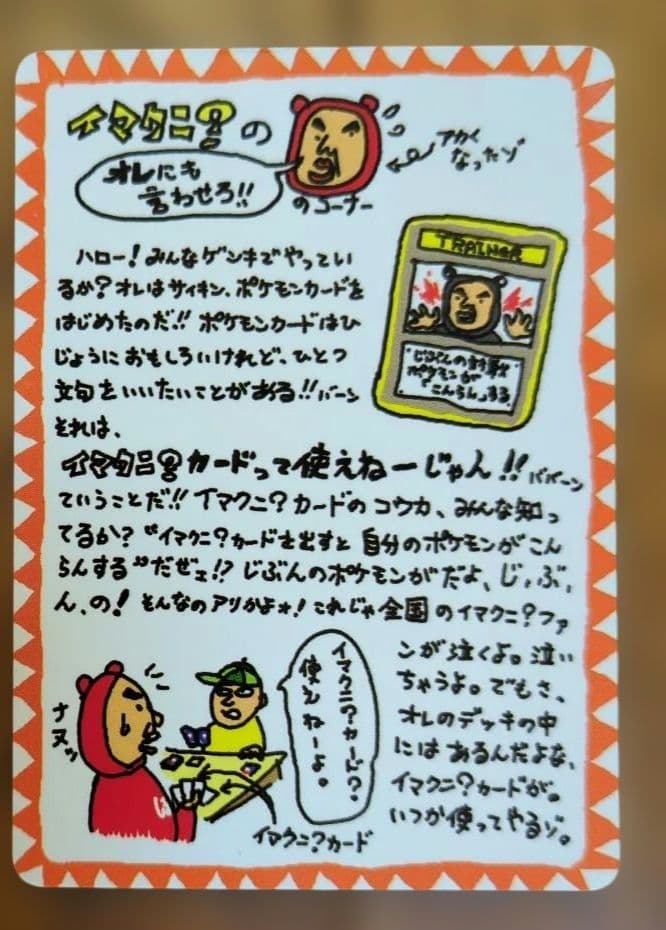 イマクニ?の
オレにも
言わせろ!!
のコーナー
アカく
なったゾ
TRAINER
じぶんの対戦
ポケモンが
「こんらん」する。
ハロー!みんなゲンキでやってい
るか?オレはサイキン、ポケモンカードを
はじめたのだ!!ポケモンカードはひ
じょうにおもしろいけれど、ひとつ
文句をいいたいことがある!!バーン
それは、
イマクニ?カードって使えねーじゃん!!ババーン
ていうことだ!!イマクニ?カードのコウカ、みんな知っ
てるか?“イマクニ?カードを出すと自分のポケモンがこん
らんする”だぜェ!?じぶんのポケモンがだよ、じ、ぶ、
ん、の!そんなのアリかよ★!これじゃ全国のイマクニ?ファ
ンが泣くよ。泣い
ちゃうよ。でもさ、
オレのデッキの中
にはあるんだよな、
イマクニ?カードが。
いつか使ってやるゾ。
ナヌッ
イマクニ?カード?
使えねーよ。
イマクニ?カード